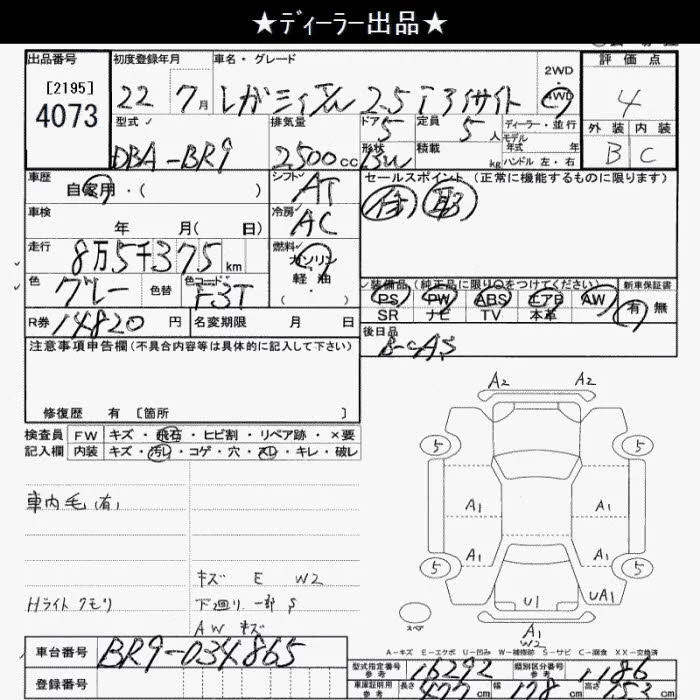 ★ディーラー出品★
出品番号 初度登録年月 車名・グレード 2WD 評価点
[2195] 4073 22 7月 レガシィワゴン 2.5iアイサイト 4WD 4
型式 排気量 ドア 5 定員 5人 ディーラー・並行 外装 内装
モデル年式 年
DBA-BR9 2500cc 形状 BW 積載 kg ハンドル 左・右 B C
車歴 自家用・( ) シフト AT セールスポイント (正常に機能するものに限ります)
車検 年 月( 日) 冷房 AC
走行 8万5千375km 燃料 ガソリン
軽油
( ・ )
色 グレー 色替 色コード F3T 装備品 (純正品に限り○をつけてください) 新車保証書
PS PW ABS エアB AW 有 無
SR ナビ TV 本革
R券 14820円 名変期限 月 日 後日品
注意事項申告欄(不具合内容等は具体的に記入して下さい)
修復歴 有 [箇所 ]
検査員 FW キズ・飛石・ヒビ割・リペア跡・×要
記入欄 内装 キズ・汚レ・コゲ・穴・スレ・キレ・破レ
A2 A2
5 5
車内毛(有) A1 A1
A1 A1
5 5
キズ E W2
Hライトクモリ 下廻り一部S U1 UA1
AWキズ スペア A1
W2
A-キズ E-エクボ U-凹み W-補修跡 S-サビ C-腐食 XX-交換済
車台番号 BR9-034865
型式指定番号 参考 16292 類別区分番号 参考 1186
登録番号 車庫証明用 参考 長さ 477cm 幅 178cm 高さ 153cm